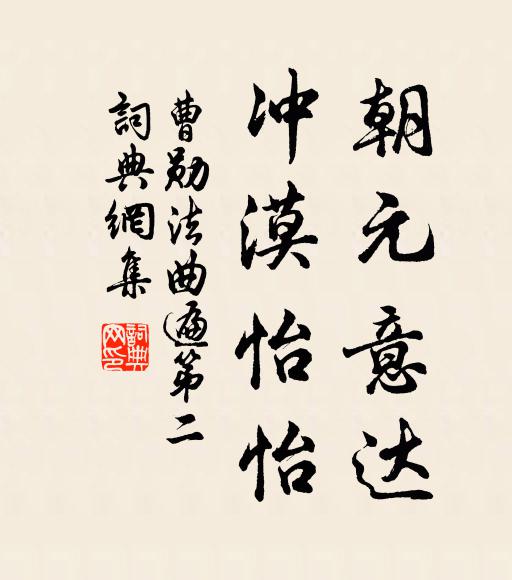 朝元意达
冲漠怡怡
曹勋法曲遍第二
詞典網集
詞典网印